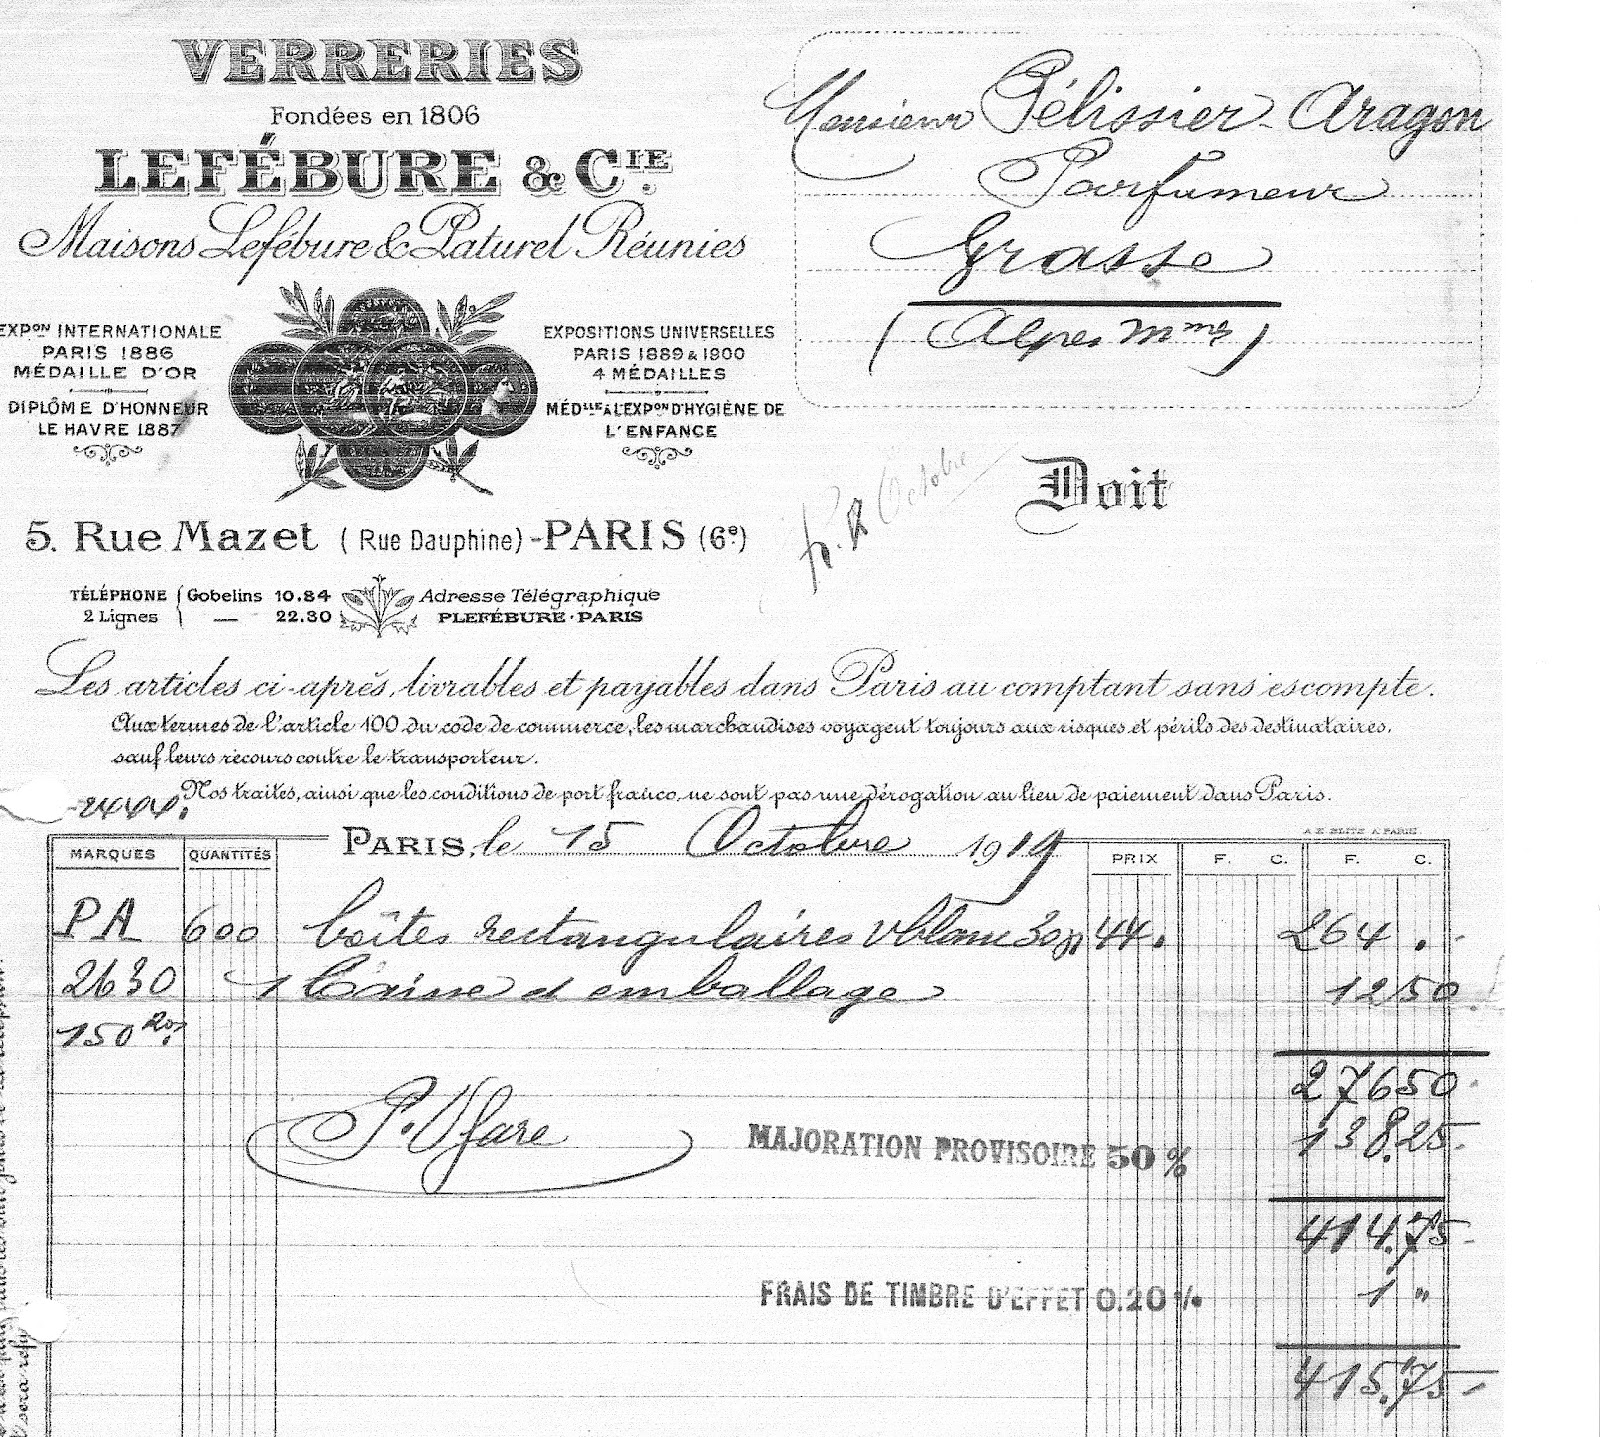 VERRERIES
Fondées en 1806
LEFÉBURE & CIE.
Maisons Lefébure & Paturel Réunies
EXPON INTERNATIONALE
PARIS 1886
MÉDAILLE D'OR
DIPLÔME D'HONNEUR
LE HAVRE 1887
EXPOSITIONS UNIVERSELLES
PARIS 1889 & 1900
4 MÉDAILLES
MÉDLLE À L'EXPON D'HYGIÈNE DE
L'ENFANCE
5. Rue Mazet (Rue Dauphine) - PARIS (6e)
TÉLÉPHONE Gobelins 10.84
2 Lignes — 22.30
Adresse Télégraphique
PLEFÉBURE·PARIS
Monsieur Pélissier-Aragon
Parfumeur
Grasse
(Alpes Mmes)
Octobre
Doit
Les articles ci-après, livrables et payables dans Paris au comptant sans escompte.
Aux termes de l'article 100 du code de commerce, les marchandises voyagent toujours aux risques et périls des destinataires,
sauf leurs recours contre le transporteur.
Nos traites, ainsi que les conditions de port franco, ne sont pas une dérogation au lieu de paiement dans Paris.
PARIS, le 15 Octobre 1919
MARQUES QUANTITÉS PRIX F. C. F. C.
PA 600 boîtes rectangulaires 44. 264 .
2630 1 Caisse et emballage 12 50
150
276 50
P.
MAJORATION PROVISOIRE 50 % 138.25
414.75
FRAIS DE TIMBRE D'EFFET 0.20 % 1 "
415.75